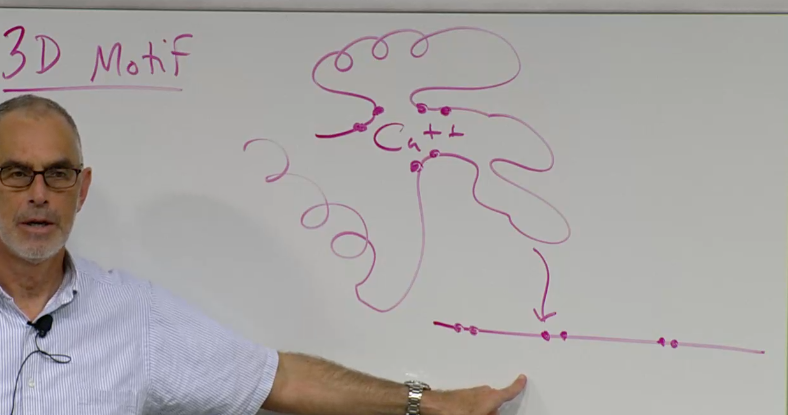 3D Motif
Ca++